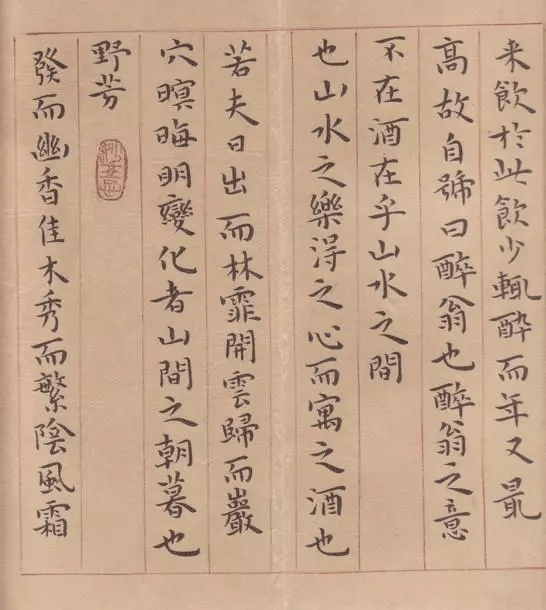 来飲於此飲少輙酔而年又最
高故自號曰醉翁也醉翁之意
不在酒在乎山水之間
也山水之樂得之心而寓之酒也
若夫日出而林霏開雲歸而巖
穴暝晦明變化者山間之朝暮也
野芳
發而幽香佳木秀而繁陰風霜